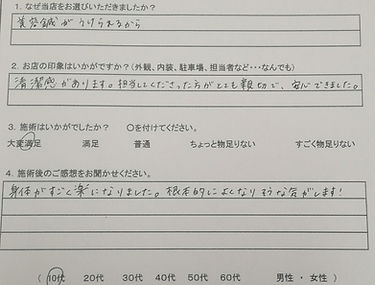 1. なぜ当店をお選びいただきましたか?
美容鍼がうけられるから
2. お店の印象はいかがですか?(外観、内装、駐車場、担当者など・・・なんでも)
清潔感があります。担当してくださった方がとても親切で、安心できました。
3. 施術はいかがでしたか? 〇を付けてください。
大変満足 満足 普通 ちょっと物足りない すごく物足りない
4. 施術後のご感想をお聞かせください。
身体がすごく楽になりました。根本的によくなりそうな気がします!
( 10代 20代 30代 40代 50代 60代 男性 ・ 女性 )